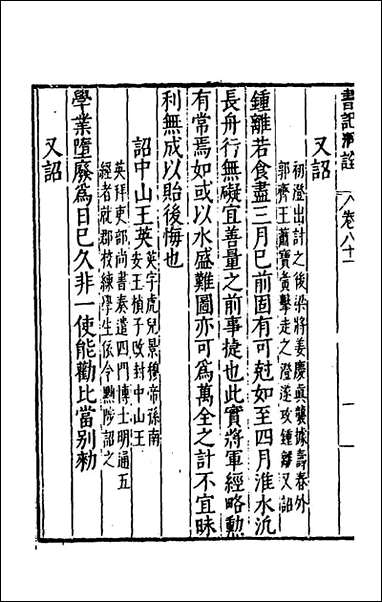 書記洞詮
卷八十一
一
又詔
初澄出討之後梁將姜慶真襲據壽春外
郭齊王蕭寶夤擊走之澄遂攻鍾離又詔
鍾離若食盡三月已前固有可尅如至四月淮水汎
長舟行無礙宜善量之前事捷也此實將軍經略勳
有常焉如或以水盛難圖亦可為萬全之計不宜昧
利無成以貽後悔也
詔中山王英
英字虎兒景穆帝孫南
安王楨子改封中山王
英拜吏部尚書奏遣四門博士明通五
經者就郡校練學生依令黜陟詔之
學業墮廢為日已久非一使能勸比當別勑
又詔